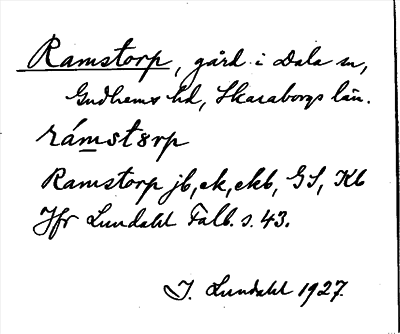 Ramstorp, gård i Dala sn,
Gudhems hd, Skaraborgs län.
rámstørp
Ramstorp jb, ek, ekb, GS, Kb
Jfr Lundahl Falb. s. 43.
I. Lundahl 1927.